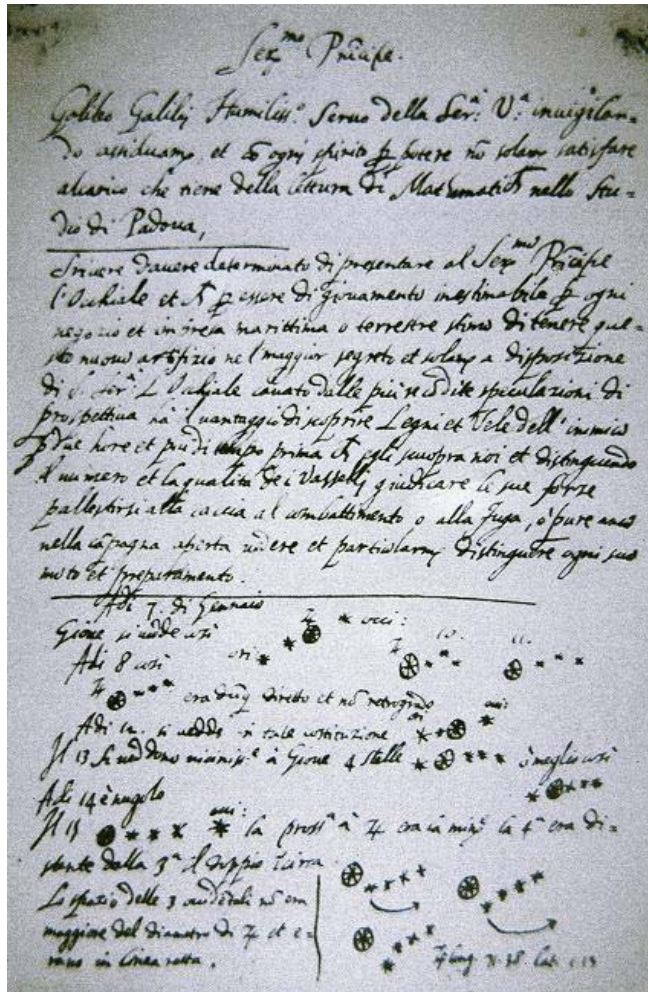 Ser.mo Prĩcipe.
Galileo Galilej Humiliss.o Seruo della Ser.a V.a inuigilan=
do assiduam.e, et cõ ogni spirito ꝑ potere nõ solam satisfare
alcarico che tiene della lettura di Mathematich nello Stu=
dio di Padoua,
Scriuere dauere determinato di presentare al Ser.mo Prĩcipe
l'Occhiale et ꝑ essere di giouamento inestimabile ꝑ ogni
negozio et impresa marittima o terrestre stimo di tenere que=
sto nuouo artifizio ne l maggior segreto et solam a disposizione
di S. Ser.a L Occhiale cauato dalle più recõdite speculazioni di
prospettiua hà l uantaggio di scoprire Legni et Vele dell' inimico
ꝑ due hore et più di tempo prima egli scuopra noi et distinguendo
il numero et la qualità de i Vasselli giudicare le sue forze
pallestirsi alla caccia al combattimento o alla fuga, ò pure anco
nella cãpagna aperta uedere et particolarm distinguere ogni suo
moto et preparamento.
Adi 7. di Gennaio
Gioue si uede così ♃ * occi:
Adi 8 così ori * * ♃ 10. 11.
♃ * * * era dũq diretto et nõ retrogrado
ori occi:
Adi 12. si uedde in tale costituzione * * *
Il 13 si ueddono uiciniss.e à Gioue 4 stelle * * * * ò meglio così
Adi 14 è nugolo * * * *
Il 15 * * * * occi: la pross.a à ♃ era la min.e la 4.a era di=
stante dalla 3.a il doppio circa.
Lo spatio delle 3 occidẽtali nõ era
maggiore del diametro di ♃ et e=
rano in linea retta.
♃ long. 71.38 lat. 1.13